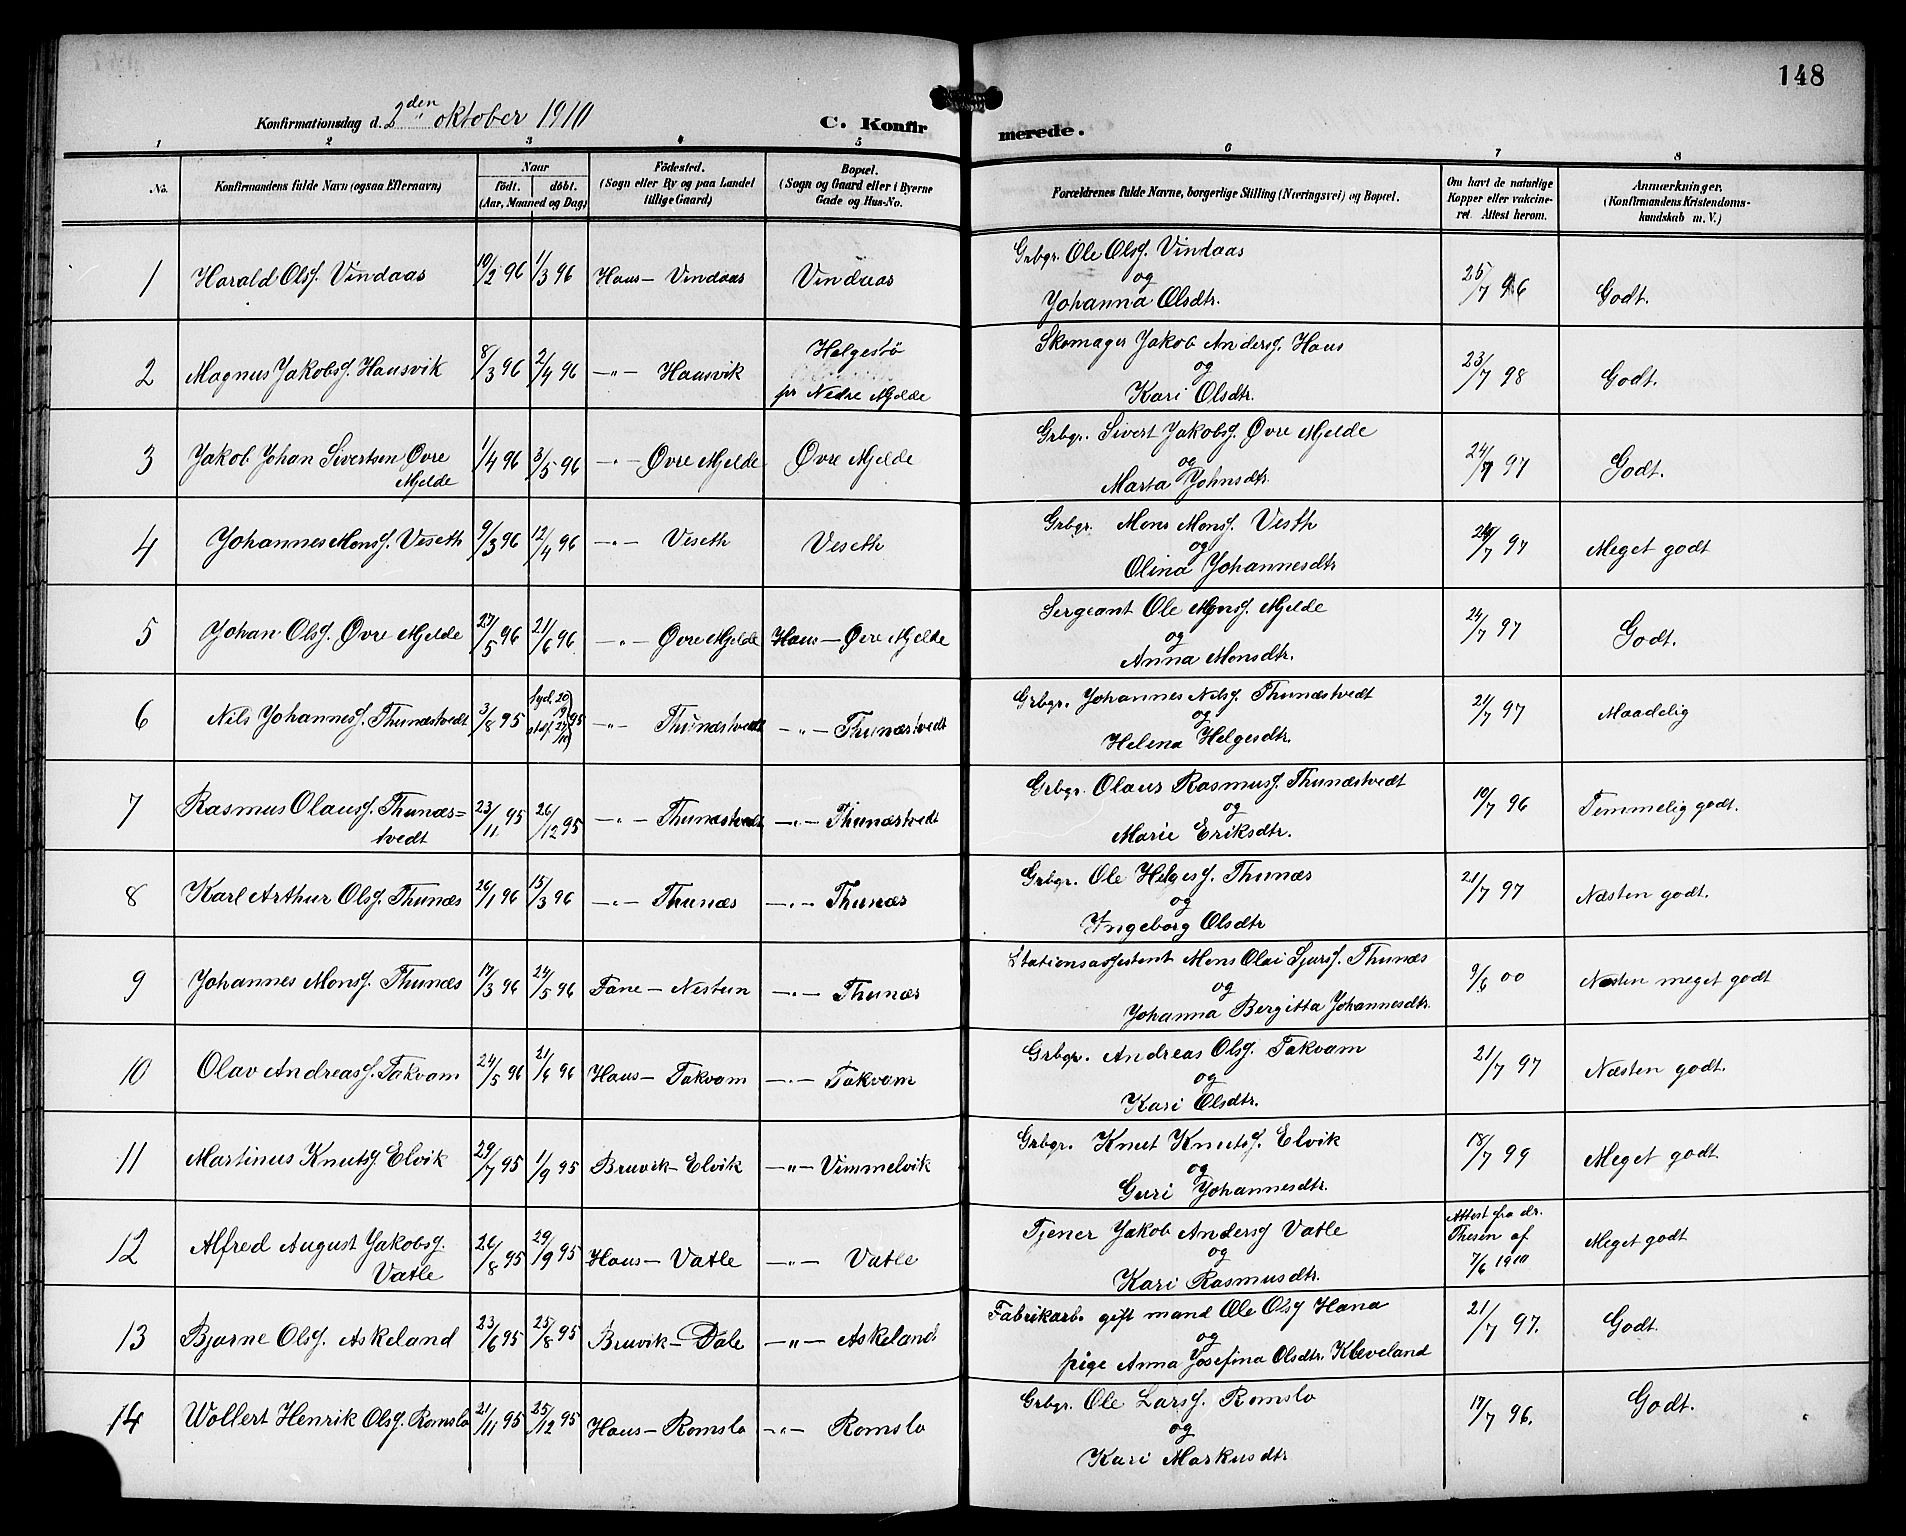 148
Konfirmationsdag d. 2den oktober 1910
C. Konfirmerede.
1 2 3 4 5 6 7 8
No.
Konfirmandens fulde Navn (ogsaa Efternavn)
Naar
födt. döbt.
(Aar, Maaned og Dag)
Födested.
(Sogn eller By og paa Landet
tillige Gaard)
Bopæl.
(Sogn og Gaard eller i Byerne
Gade og Hus-No.
Forældrenes fulde Navne, borgerlige Stilling (Næringsvei) og Bopæl.
Om havt de naturlige
Kopper eller vakcine-
ret. Attest herom.
Anmærkninger.
(Konfirmandens Kristendoms-
kundskab m. V.)
1 Harald Olsf. Vindaas 10/2 96 1/3 96 Haus — Vindaas Vindaas
Grbgr. Ole Olsf. Vindaas
og
Johanna Olsdtr.
25/7 96 Godt.
2 Magnus Jakobsf. Hausvik 8/3 96 2/4 96 —"— Hausvik Helgestö
pr Nedre Mjelde
Skomager Jakob Andersf. Haus
og
Kari Olsdtr.
23/7 98 Godt.
3 Jakob Johan Sivertsen Øvre
Mjelde 1/4 96 3/5 96 —"— Øvre Mjelde Øvre Mjelde
Grbgr. Sivert Jakobsf. Øvre Mjelde
og
Marta Johnsdtr.
24/7 97 Godt.
4 Johannes Monsf. Veseth 9/3 96 12/4 96 —"— Veseth Veseth
Grbgr. Mons Monsf. Vesth
og
Olina Johannesdtr
24/7 97 Meget godt
5 Johan Olsf. Øvre Mjelde 27/5 96 21/6 96 —"— Øvre Mjelde Haus — Øvre Mjelde
Sergeant Ole Monsf. Mjelde
og
Anna Monsdtr.
24/7 97 Godt.
6 Nils Johannesf. Thunæstvedt 3/8 95 —"— Thunæstvedt —"— Thunæstvedt
Grbgr. Johannes Nilsf. Thunæstvedt
og
Helena Helgesdtr.
21/7 97 Maadelig
7 Rasmus Olausf. Thunæs=
tvedt 23/11 95 26/12 95 —"— Thunæstvedt —"— Thunæstvedt
Grbgr. Olaus Rasmusf. Thunæstvedt
og
Marie Eriksdtr.
10/7 96 Temmelig godt.
8 Karl Arthur Olsf. Thunæs 26/1 96 15/3 96 —"— Thunæs —"— Thunæs
Grbgr. Ole Helgesf. Thunæs
og
Ingeborg Olsdtr
21/7 97 Næsten godt.
9 Johannes Monsf. Thunæs 17/3 96 24/5 96 Fane — Nestun —"— Thunæs
Stationsassistent Mons Olai Sjursf. Thunæs
og
Johanna Bergitta Johannesdtr.
9/6 00 Næsten meget godt
10 Olav Andreasf. Takvam 24/5 96 21/6 96 Haus — Takvam —"— Takvam
Grbgr. Andreas Olsf. Takvam
og
Kari Olsdtr.
21/7 97 Næsten godt.
11 Martinus Knutsf Elvik 29/7 95 1/9 95 Bruvik — Elvik —"— Vimmelvik
Grbgr. Knut Knutsf. Elvik
og
Guri Johannesdtr.
18/7 99 Meget godt
12 Alfred August Jakobsf.
Vatle 26/8 95 29/9 95 Haus — Vatle —"— Vatle
Tjener Jakob Andersf Vatle
og
Kari Rasmusdtr.
Attest fra dr.
Thesen af
7/6 1910
Meget godt
13 Bjarne Olsf. Askeland 23/6 95 25/8 95 Bruvik — Dale —"— Askeland
Fabrikarb. gift mand Ole Olsf Hana
og
pige Anna Josefina Olsdtr. Kleveland
21/7 97. Godt.
14 Wollert Henrik Olsf. Romslo 21/11 95 25/12 95 Haus — Romslo —"— Romslo
Grbgr. Ole Larsf. Romslo
og
Kari Markusdtr
17/7 96. Godt.